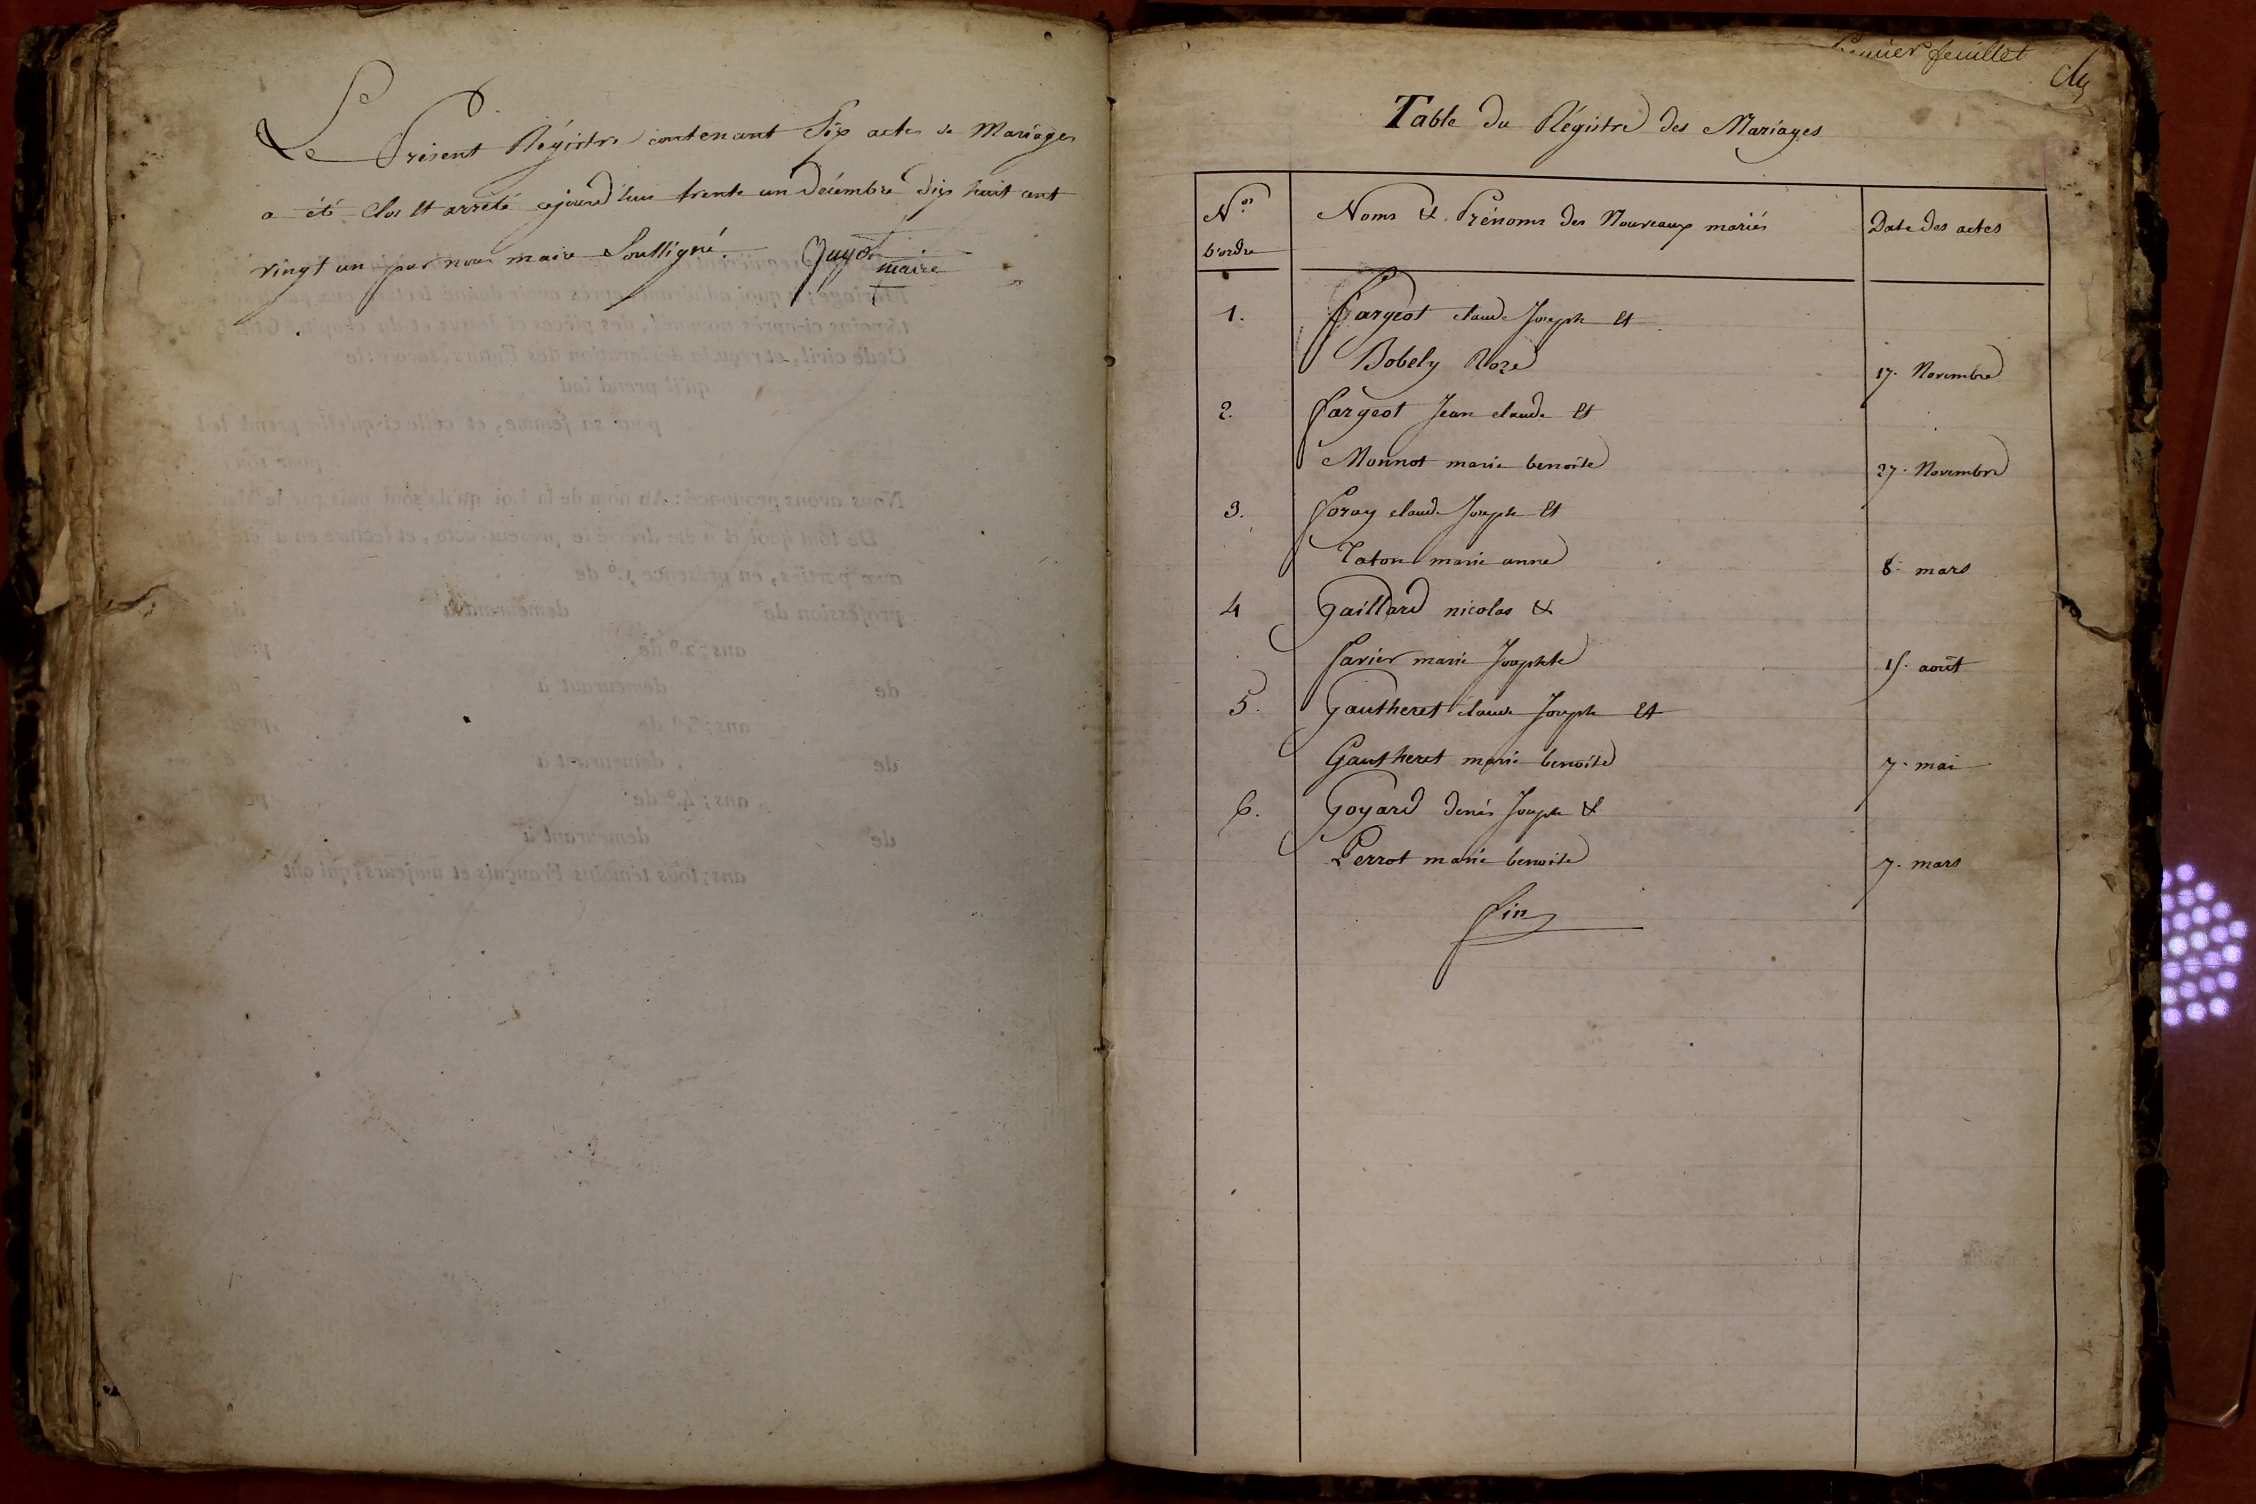 Le Présent Régistre contenant Six actes de Mariages
a été Clos Et arrêté cejourd'hui trente un Décembre dix huit cent
vingt un par nous maire Soussigné. Guyot
maire
Premier feuillet
Table du Régistre des Mariages
Nos d'ordre
Noms et Prénoms des Nouveaux mariés
Date des actes
1. Fargeot claude Joseph Et
Bobely Roze 17. Novembre
2. Fargeot Jean claude Et
Monnot marie benoite 27. Novembre
3. Foray claude Joseph Et
Taton marie anne 8. mars
4 Gaillard nicolas &
Favier marie Josephte 15. août
5. Gautheret claude Joseph Et
Gautheret marie benoite 7. mai
6. Goyard denis Joseph &
Perrot marie benoite 7. mars
fin